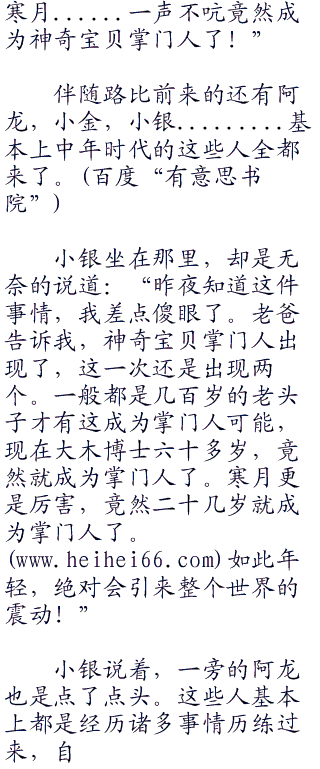 寒月......一声不吭竟然成
为神奇宝贝掌门人了！”
伴随路比前来的还有阿
龙，小金，小银.........基
本上中年时代的这些人全都
来了。(百度“有意思书
院”)
小银坐在那里，却是无
奈的说道：“昨夜知道这件
事情，我差点傻眼了。老爸
告诉我，神奇宝贝掌门人出
现了，这一次还是出现两
个。一般都是几百岁的老头
子才有这成为掌门人可能，
现在大木博士六十多岁，竟
然就成为掌门人了。寒月更
是厉害，竟然二十几岁就成
为掌门人了。
(www.heihei66.com)如此年
轻，绝对会引来整个世界的
震动！”
小银说着，一旁的阿龙
也是点了点头。这些人基本
上都是经历诸多事情历练过
来，自